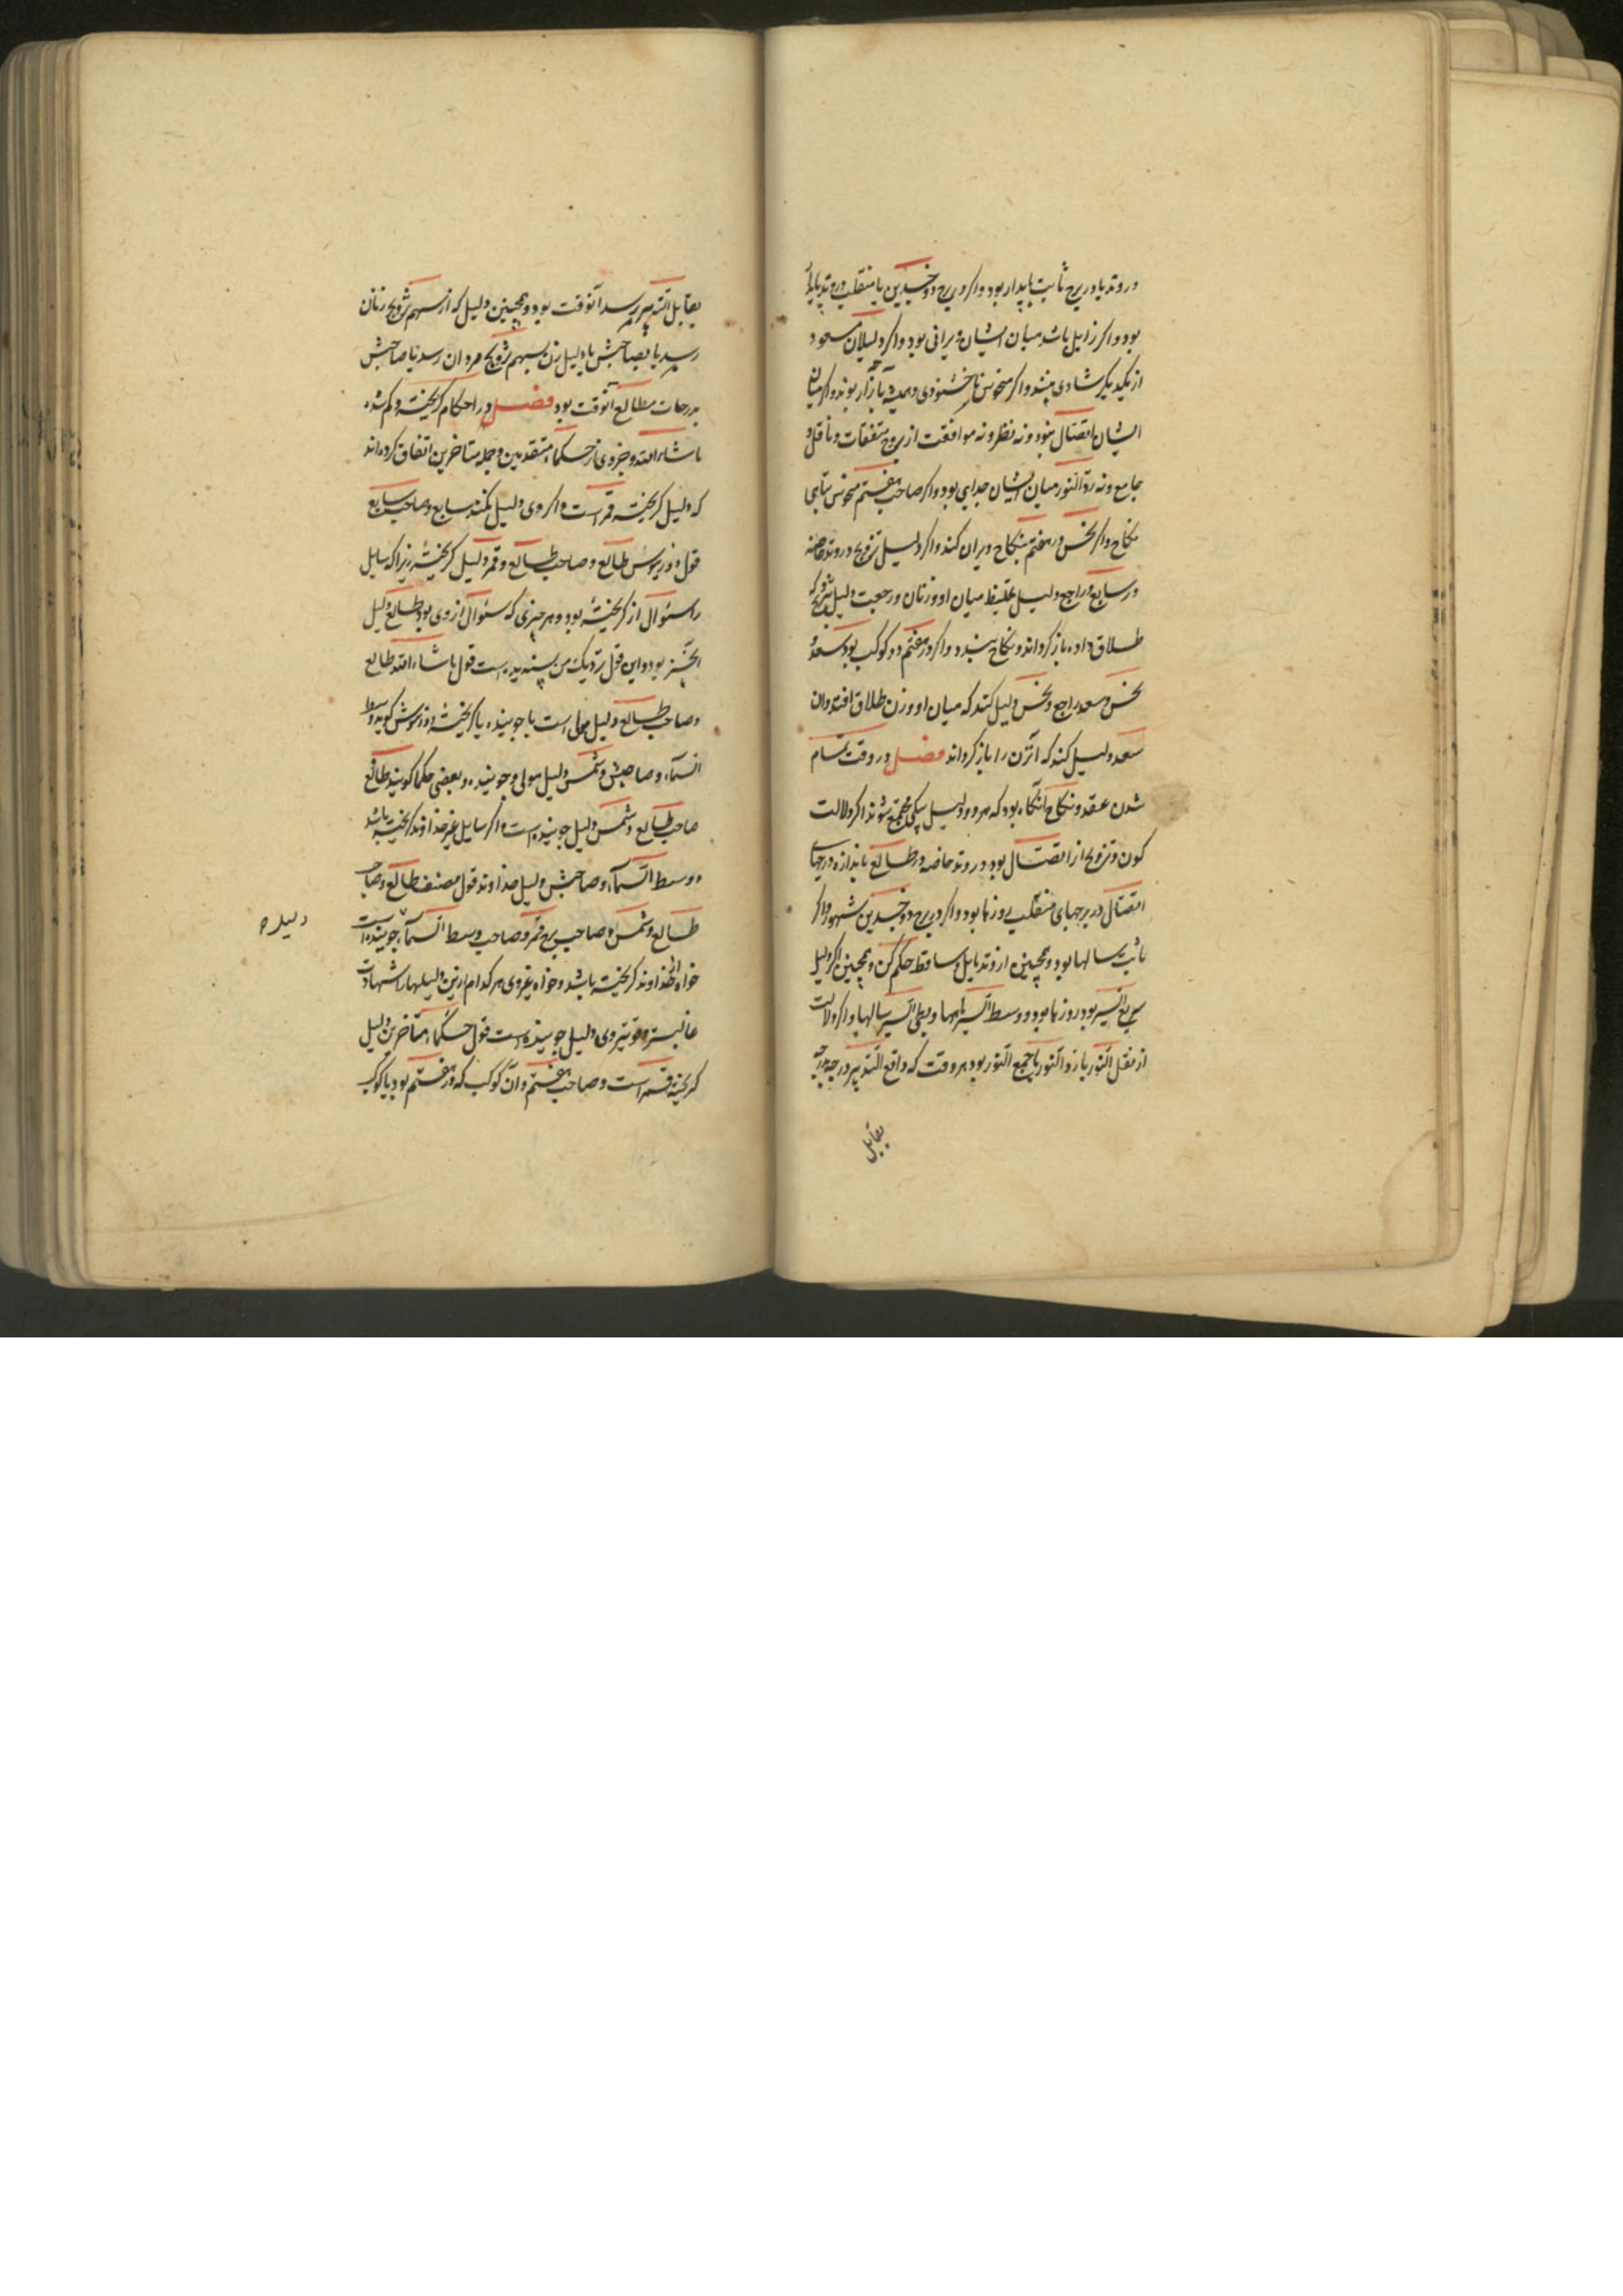 در وتد یا در برج ثابت پایدار بود و اگر در برج ذو جسدین یا منقلب در وتد پایدار
بود و اگر زایل باشد میان ایشان ویرانی بود و اگر دلیلان مسعود
از یکدیگر شادی بینند و اگر منحوس ناخشنودی و همیشه بآزار بوند و اگر میان
ایشان اتصال نبود و نه نظر و نه موافقت از بروج متفقات و ناقل و
جامع و نه ردّ النور میان ایشان جدایی بود و اگر صاحب هفتم منحوس تباهی
نکاح و اگر نحس در هفتم بنکاح ویران کند و اگر دلیل تزویج در وتد خاصه
در سابع و راجع دلیل غلیظ میان او و زنان و رجعت دلیل تزویج که
طلاق داده باز گرداند و نکاح ببندد و اگر در هفتم دو کوکب بود سعد و
نحس و سعد راجع و نحس دلیل کند که میان او و زن طلاق افتد و ان
سعد دلیل کند که آن زن را باز گرداند فصل در وقت تمام
شدن عقد و نکاح آنگاه بود که هر دو دلیل بیکی مجتمع شوند اگر دلالت
کون و تزویج از اتصال بود در وتد خاصه در طالع باندازه درجهای
اتصال در برجهای منقلب روزها بود و اگر در برج ذو جسدین شهور و اگر
ثابت سالها بود و همچنین از وتد مایل و ساقط حکم کن و همچنین اگر دلیل
سریع السیر بود روزها بود و وسط السیر ماهها و بطی السیر سالها و اگر دلالت
از نقل النور یا ردّ النور یا جمع النور بود هر وقت که دافع التدبیر درجه بدرجه
بقابل
بقابل التدبیر رسد آنوقت بود و همچنین دلیل که از سهم تزویج زنان
رسد یا بصاحبش یا دلیل زن بسهم تزویج مردان رسد یا صاحبش
بدرجات مطالع آنوقت بود فصل در احکام گریخته و گم شده
ماشاء الله و جزوی از حکماء متقدمین و جمله متاخرین اتفاق کرده‌اند
که دلیل گریخته قمر است و اگر وی دلیل نکند سابع و صاحب سابع
قول ذوریوس طالع و صاحب طالع و قمر دلیل گریخته زیرا که سایل
را سئوال از گریخته بود و هر چیزی که سئوال از وی بود طالع دلیل
بود و این قول نزدیک من پسندیده است قول ماشاء الله طالع
و صاحب طالع دلیل مولی است یا جوینده یا گریخته ذوریوس گوید وسط
السماء و صاحبش و شمس دلیل مولی و جوینده و بعضی حکما گویند طالع
صاحب طالع و شمس دلیل جوینده است و اگر سایل غیر خداوند گریخته باشد
و وسط السماء و صاحبش دلیل خداوند قول مصنف طالع و صاحب
طالع و شمس و صاحب برج قمر و صاحب وسط السماء جوینده است
خواه خداوند گریخته باشد و خواه غیر وی هر کدام ازین دلیلها را شهادت
غالبتر و قوتیتر وی دلیل جوینده است قول حکماء متاخرین دلیل
گریخته قمر است و صاحب هفتم و آن کوکب که در هفتم بود یا کوکب